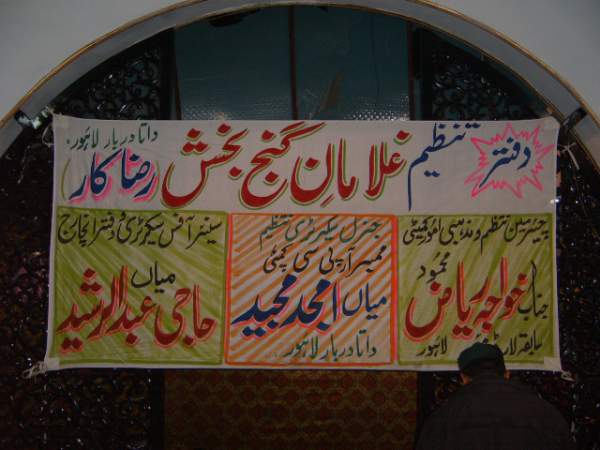 دفتر تنظیم غلامانِ گنج بخش (رضا کار) داتا دربار لاہور
چیئرمین تنظیم و مذہبی امور کمیٹی
جناب خواجہ ریاض محمود
سابقہ لارڈ میئر لاہور
جنرل سیکرٹری تنظیم
ممبر آر پی سی کمیٹی
میاں امجد مجید
داتا دربار لاہور
سینئر آفس سیکرٹری و دفتر انچارج
میاں
حاجی عبدالرشید